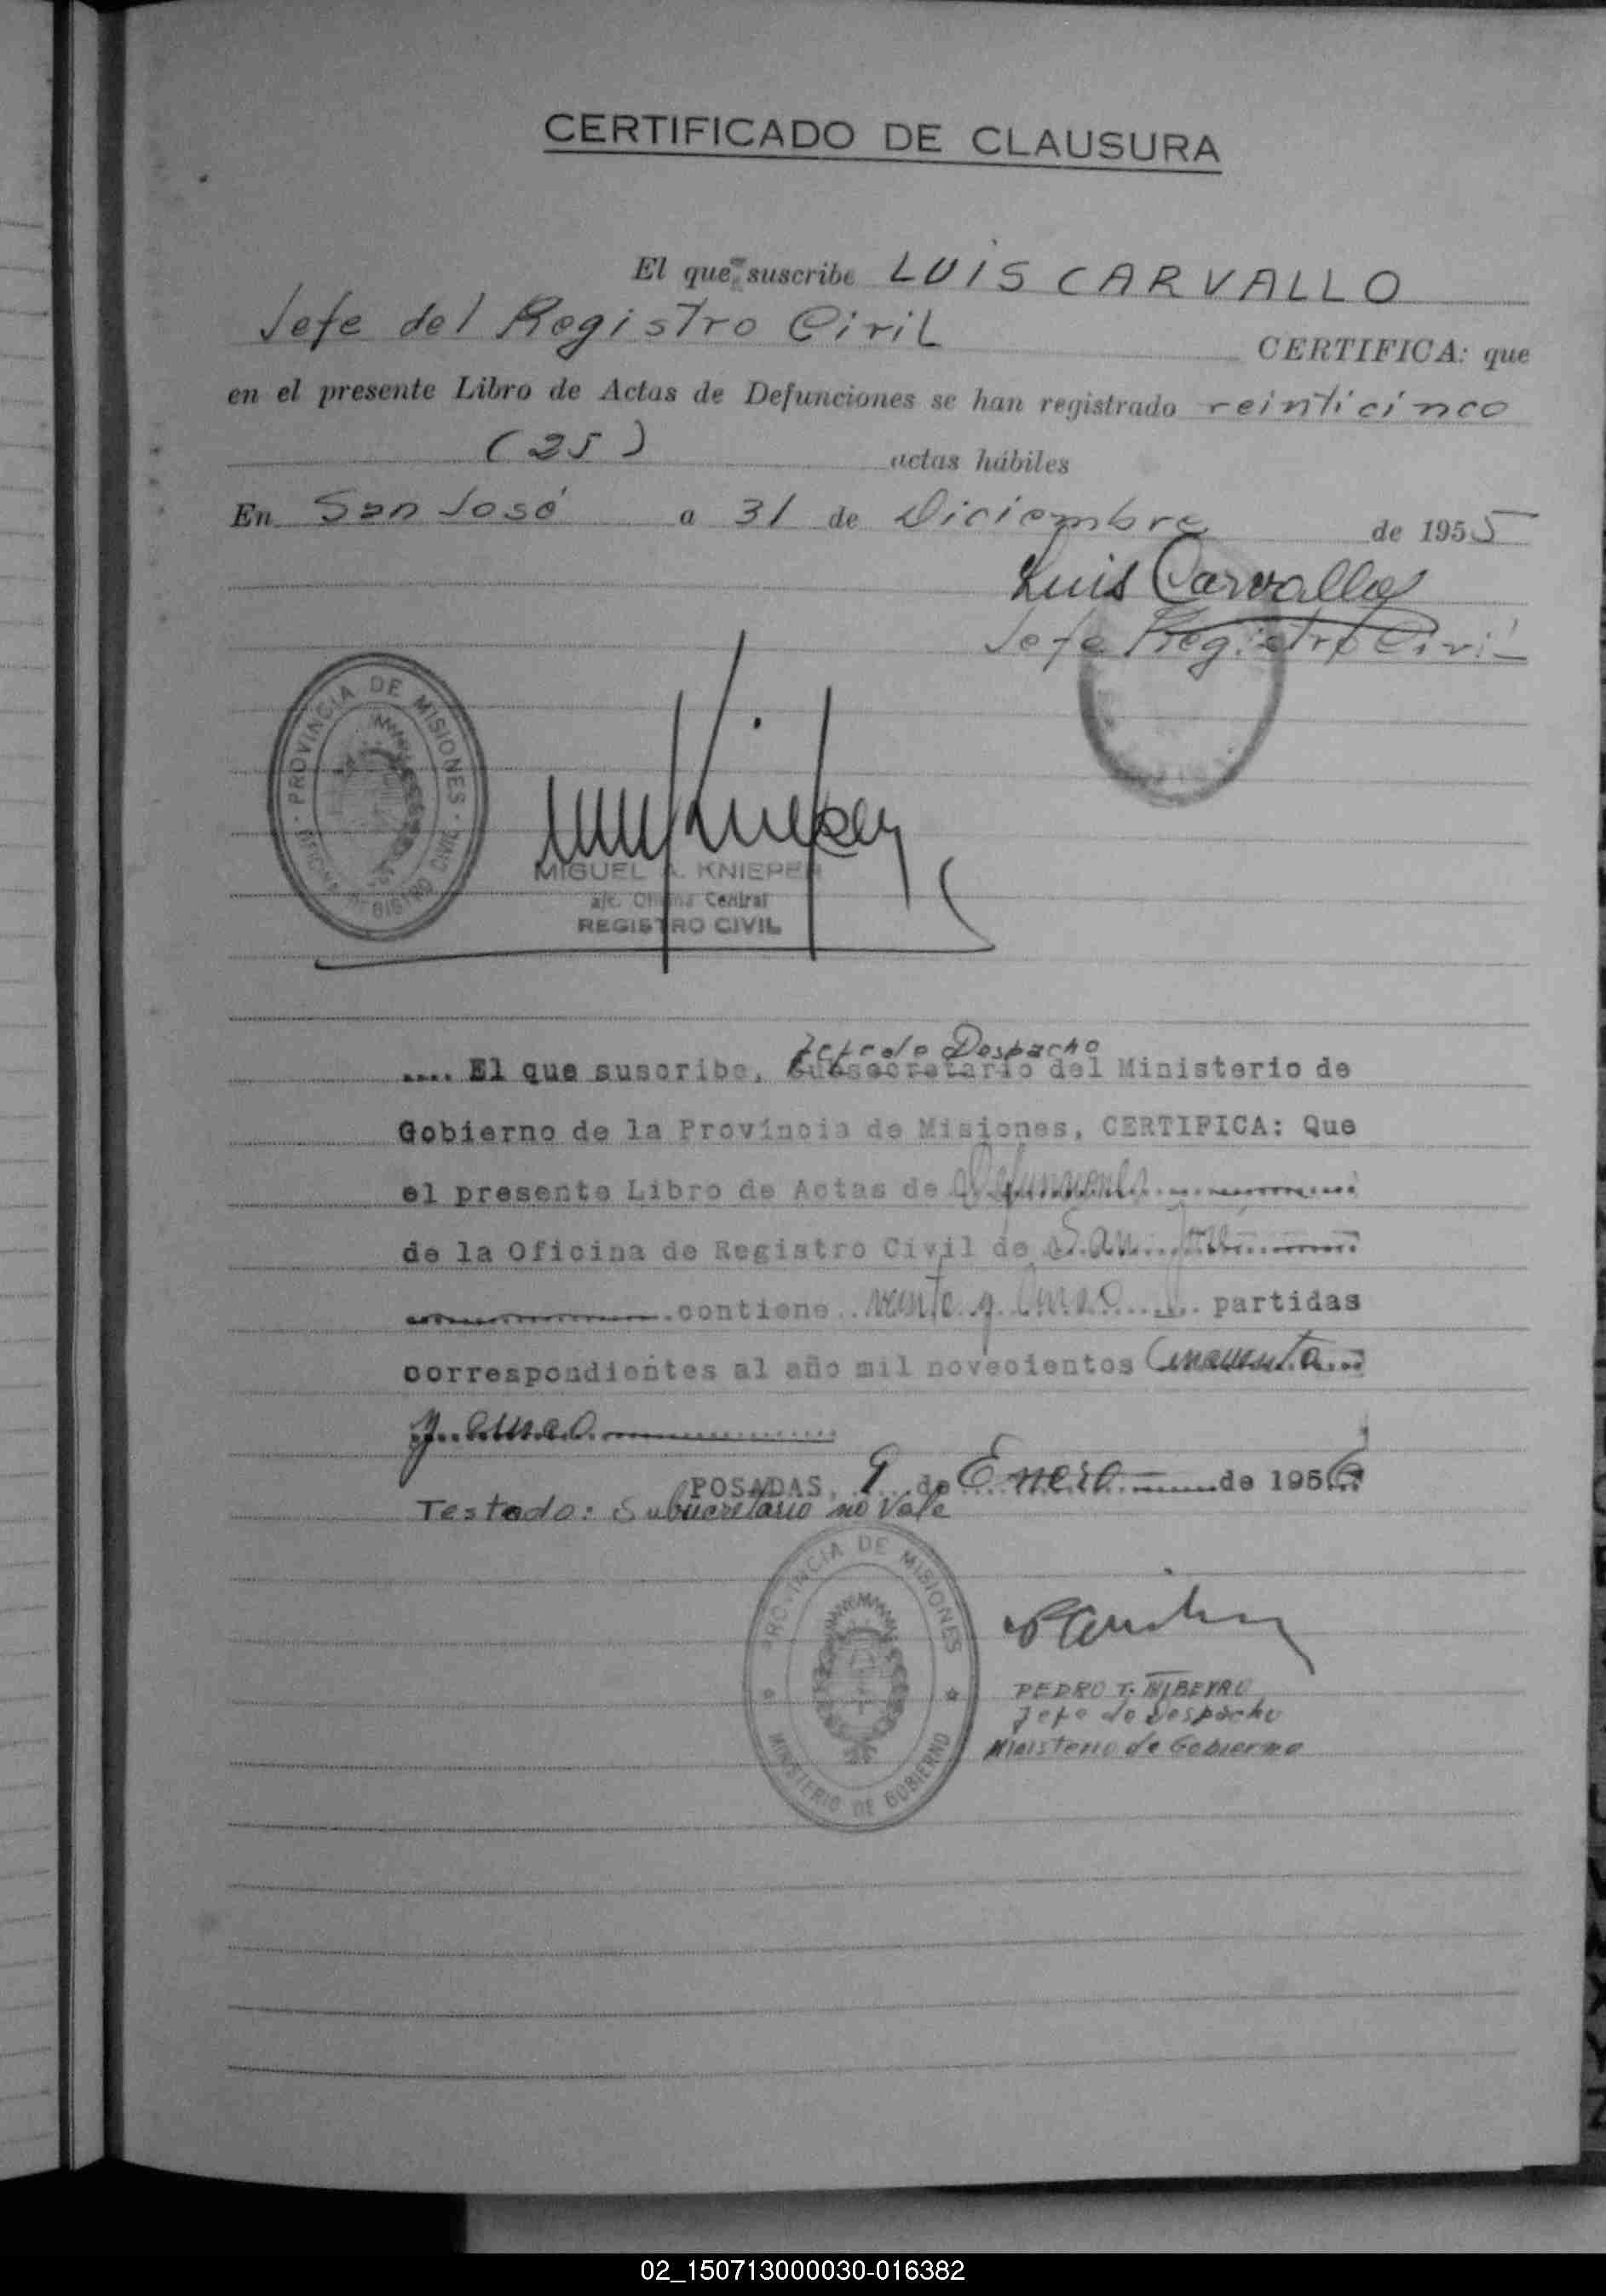 CERTIFICADO DE CLAUSURA
El que suscribe LUIS CARVALLO
Jefe del Registro Civil CERTIFICA: que
en el presente Libro de Actas de Defunciones se han registrado veinticinco
(25) actas hábiles
En San José a 31 de Diciembre de 1955
Luis Carvallo
Jefe Registro Civil
PROVINCIA DE MISIONES
OFICINA REGISTRO CIVIL
MIGUEL A. KNIEPER
a/c. Oficina Central
REGISTRO CIVIL
Jefe de Despacho
.... El que suscribe, Subsecretario del Ministerio de
Gobierno de la Provincia de Misiones, CERTIFICA: Que
el presente Libro de Actas de Defunciones
de la Oficina de Registro Civil de San José
contiene veinte y cinco partidas
correspondientes al año mil novecientos Cincuenta
y cinco
POSADAS, 9 de Enero de 1956
Testado: Subsecretario no Vale
PROVINCIA DE MISIONES
MINISTERIO DE GOBIERNO
PEDRO T. RIBEYRO
Jefe de Despacho
Ministerio de Gobierno
02_150713000030-016382